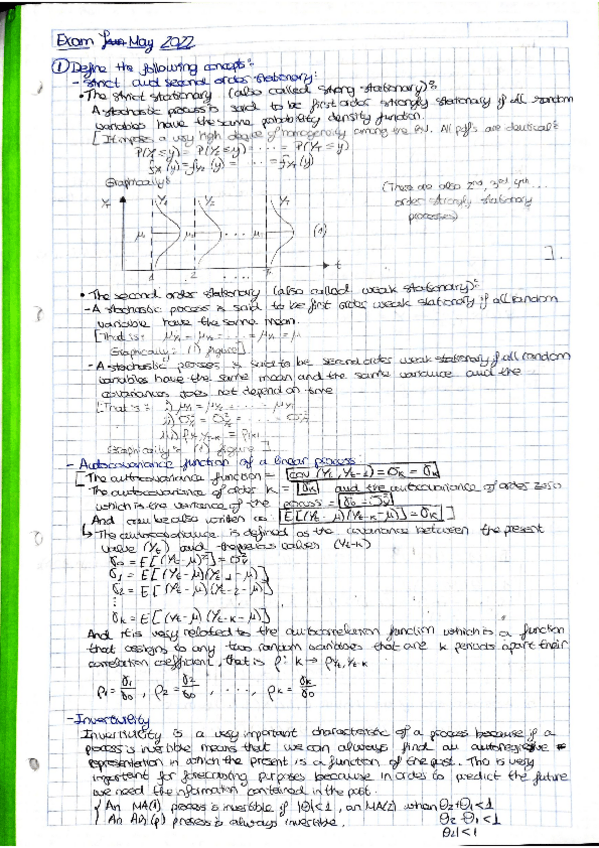 Exam May 2022
① Define the following concepts:
- Strict and second order stationary:
• The strict stationary (also called strong stationary):
A stochastic process is said to be first order strongly stationary if all random
variables have the same probability density function.
[It implies a very high degree of homogeneity among the RV. All pdf's are identical:
P(Y₁≤y) = P(Y₂≤y) = ... = P(Yₜ≤y)
f₁(y) = fy₂(y) = ... = fyₜ(y)
Graphically:
(There are also 2nd, 3rd, 4th...
order strongly stationary
processes)
Yₜ Y₁ Y₂ Yₜ
μ₁ μ₂ ... μₜ (1)
1 2 .... t
].
• The second order stationary (also called weak stationary):
- A stochastic process is said to be first order weak stationary if all random
variable have the same mean.
[That is: μ₁ = μ₂ = ... = μₜ = μ
Graphically: (1) figure]
- A stochastic process is said to be second order weak stationary if all random
variables have the same mean and the same variance and the
covariances does not depend on time
[That is: i) μy₁ = μy₂ = ... = μyₜ
ii) σ²₁ = σ²₂ = ... = σ²
iii)
Graphically: (1) figure]
- Autocovariance function of a linear process:
[The autocovariance function =
- The autocovariance of order k = γk and the autocovariance of order zero
which is the variance of the process = γ₀ = σ²y
And can be also written as: E[(Yₜ-μ)(Yₜ-k-μ)] = γk ]
↳ The autocovariance is defined as the covariance between the present
value (Yₜ) and previous values (Yₜ-k)
γ₀ = E[(Yₜ-μ)²] = σ²y
γ₁ = E[(Yₜ-μ)(Yₜ-1-μ)]
γ₂ = E[(Yₜ-μ)(Yₜ-2-μ)]
⋮
γk = E[(Yₜ-μ)(Yₜ-k-μ)]
And it is very related to the autocorrelation function which is a function
that assigns to any two random variables that are k periods apart their
correlation coefficient, that is ρ: k → ρYₜ,Yₜ-k
ρ₁ = γ₁/γ₀ , ρ₂ = γ₂/γ₀ , ..., ρk = γk/γ₀
- Invertibility
Invertibility is a very important characteristic of a process because if a
process is invertible means that we can always find an autoregressive
representation in which the present is a function of the past. This is very
important for forecasting purposes because in order to predict the future
we need the information contained in the past.
An MA(1) process is invertible if |θ|<1, an MA(2) when θ₂+θ₁<1
An AR(p) process is always invertible. θ₂-θ₁<1
|θ₂|<1